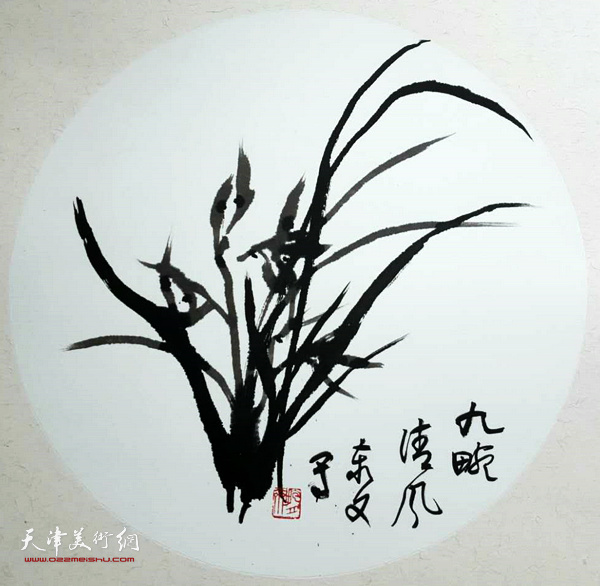 九畹
清风
东文
写
天津美術網
www.022meishu.com